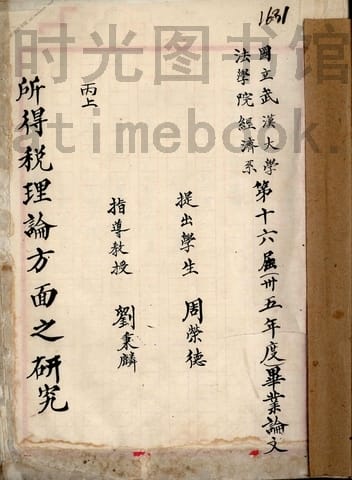 1631
國立武漢大學
法學院經濟系
第十六屆(卅五年度)畢業論文
提出學生 周榮德
指導教授 劉秉麟
丙上
所得稅理論方面之研究
时光图书馆
atimebook.